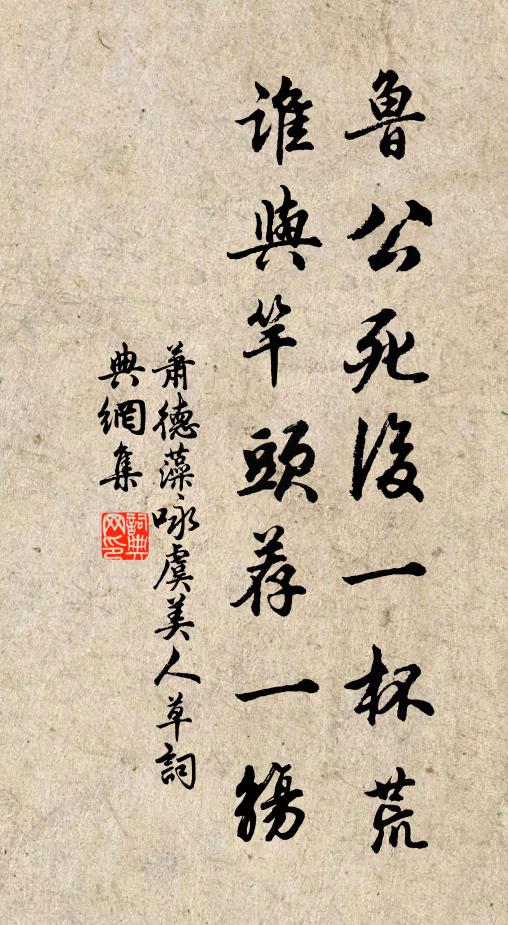 魯公死後一杯荒
誰與竿頭荐一觴
蕭德藻咏虞美人草詞
典網集
詞典网印